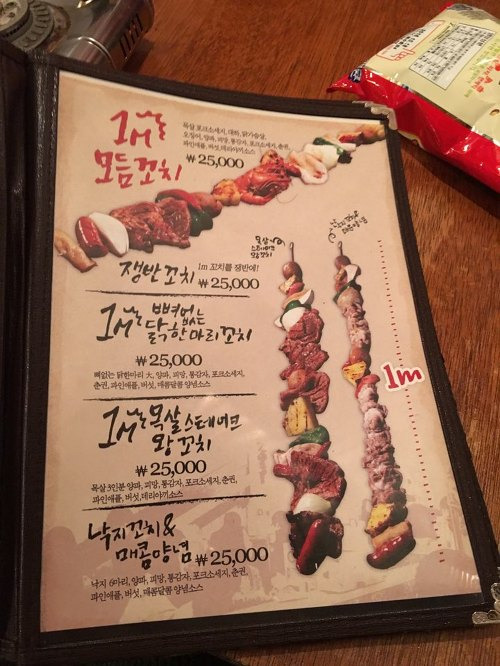 1m
모듬꼬치
목살 포크소세지, 대하, 닭가슴살,
오징어, 양파, 피망, 통감자, 포크소세지, 춘권,
파인애플, 버섯, 데리야끼소스
₩ 25,000
쟁반꼬치
1m 꼬치를 쟁반에!
₩ 25,000
1m
뼈없는
닭한마리꼬치
₩ 25,000
뼈없는 닭한마리 大, 양파, 피망, 통감자, 포크소세지,
춘권, 파인애플, 버섯, 매콤달콤 양념소스
1m 목살스테이크
왕꼬치
₩ 25,000
목살 3인분 양파, 피망, 통감자, 포크소세지, 춘권,
파인애플, 버섯, 데리야끼소스
낙지꼬치&
매콤양념
₩ 25,000
낙지 6마리, 양파, 피망, 통감자, 포크소세지, 춘권,
파인애플, 버섯, 매콤달콤 양념소스
목살
스테이크
왕꼬치
1m